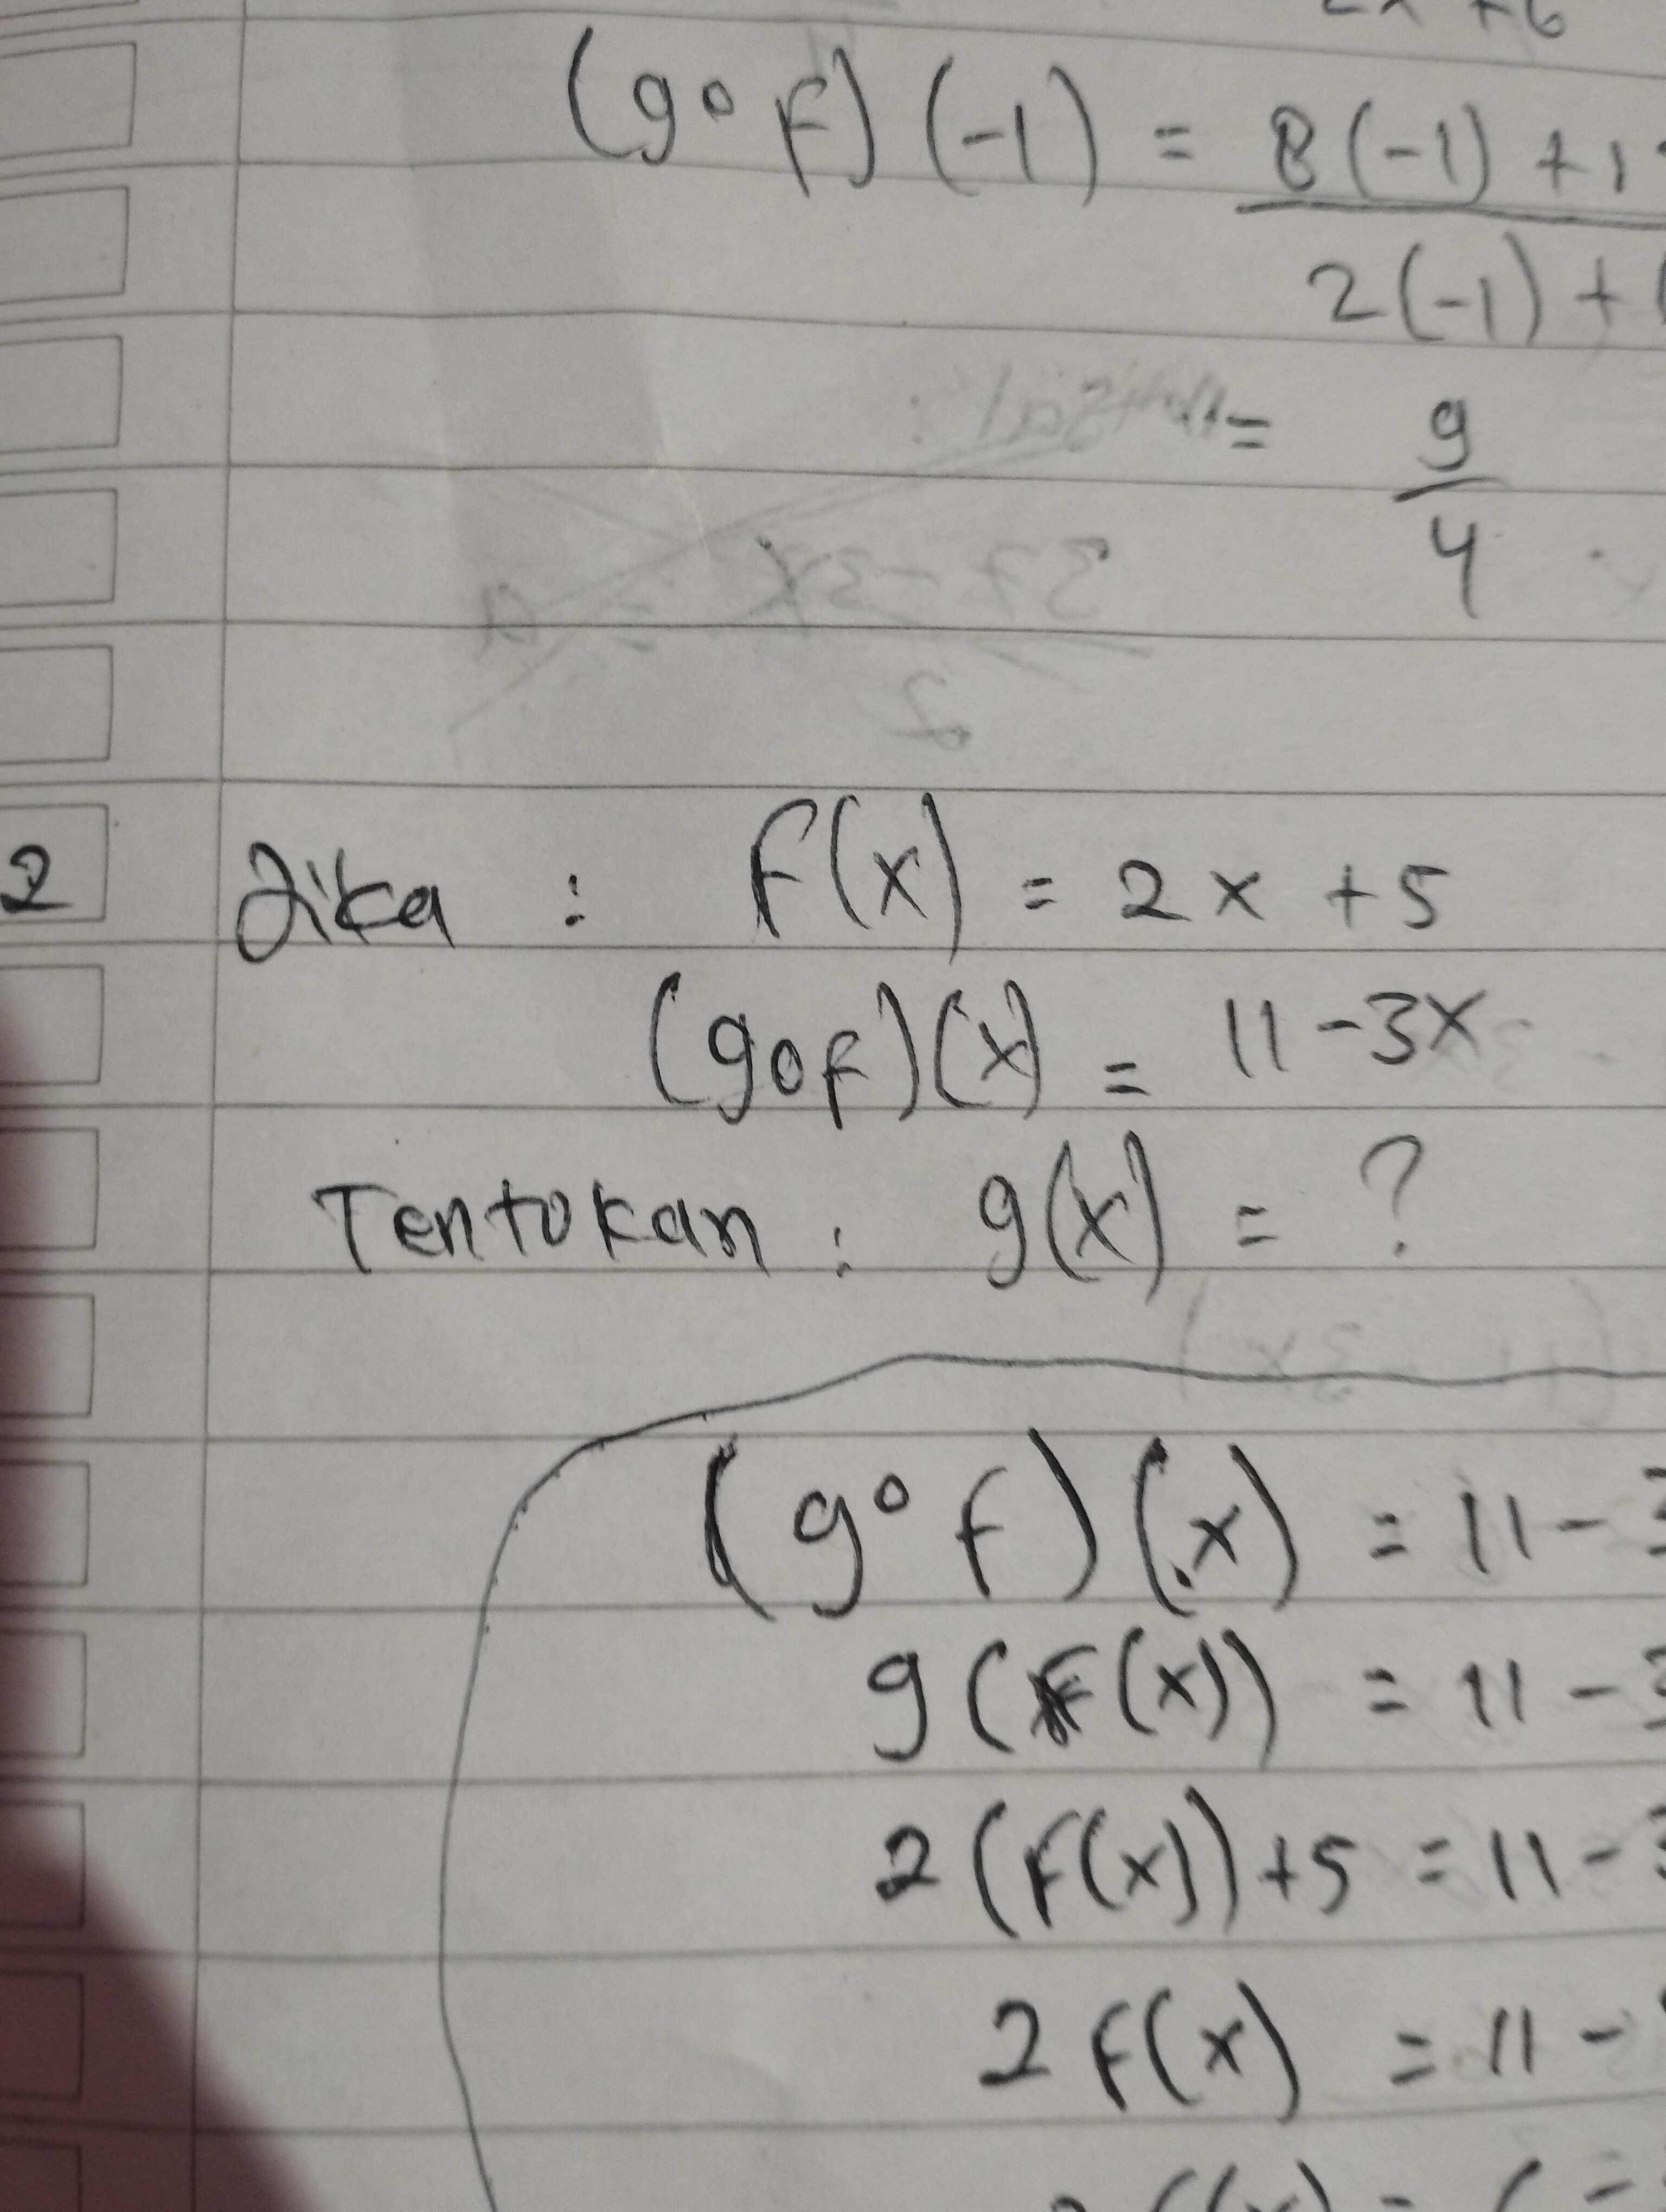 2x + 6
(g∘f)(-1) = 8(-1) + 1
2(-1) +
= 9
4
2 Jika : F(x) = 2x + 5
(gof)(x) = 11 - 3x
Tentokan : g(x) = ?
(g∘f)(x) = 11 -
g(F(x)) = 11 -
2(F(x)) + 5 = 11 -
2 F(x) = 11 -